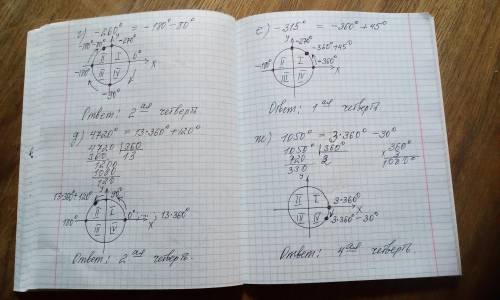 г) -260° = -180° - 80°
-180°-80°
-270°
y
0°
II I
III IV
x
-180°
-90°
Ответ: 2 ая четверть
д) 4720° = 13·360° + 120°
4720 | 360
360 13
1200
1080
120
13·360°+120°
y
90°
II I
180°
0°
13·360°
III IV
x
Ответ: 2 ая четверть.
е) -315° = -360° + 45°
y
-270°
-360°+45°
II I
-360°
-180°
III IV
x
Ответ: 1 ая четверть
ж) 1050° = 3·360° - 30°
1050° | 360°
720 2
330
360°
3
1080°
y
II I
3·360°
x
III IV
3·360° - 30°
Ответ: 4 ая четверть.